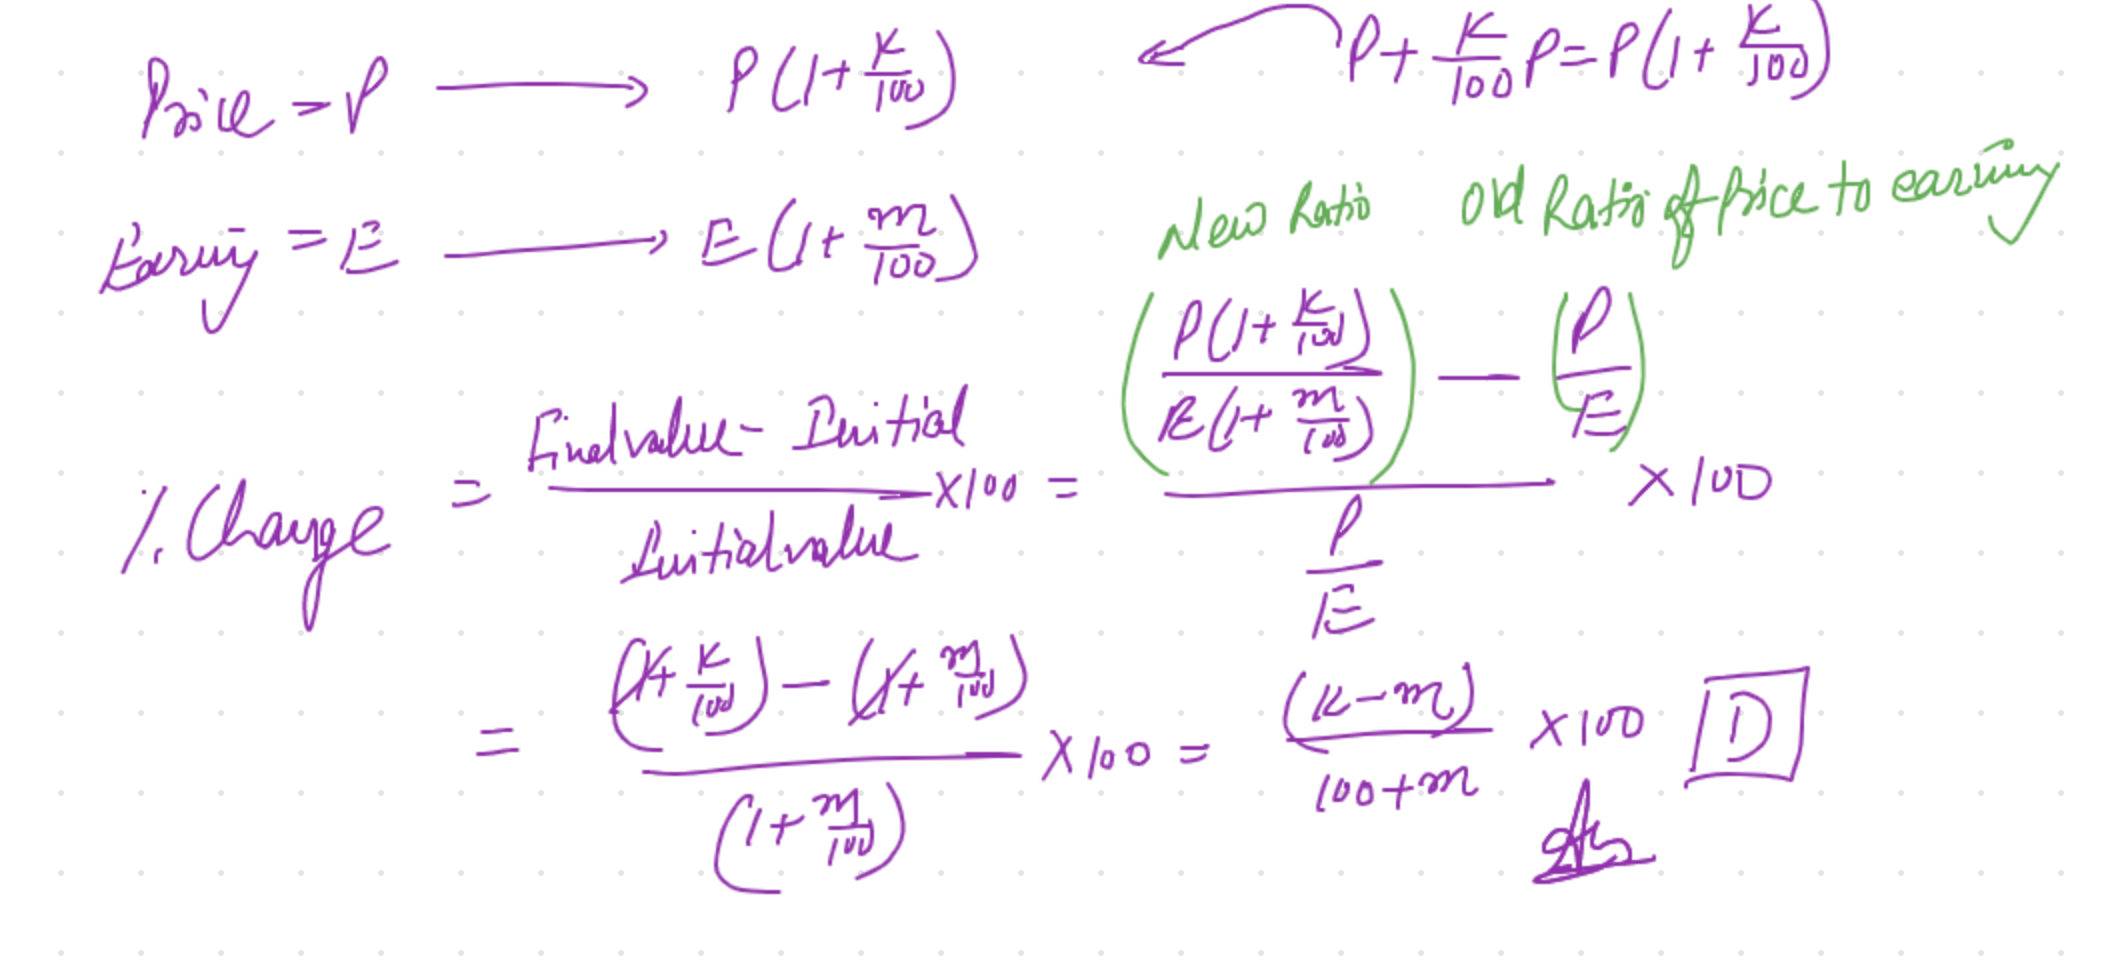 Price = P → P(1 + K/100) ← P + K/100 P = P(1 + K/100)
Earning = E → E(1 + m/100)
New Ratio Old Ratio of Price to earning
% Change = (Final value - Initial)/(Initial value) × 100 = ((P(1 + K/100))/(E(1 + m/100)) - (P/E))/(P/E) × 100
= ((1 + K/100) - (1 + m/100))/(1 + m/100) × 100 = (K - m)/(100 + m) × 100 D
Ans